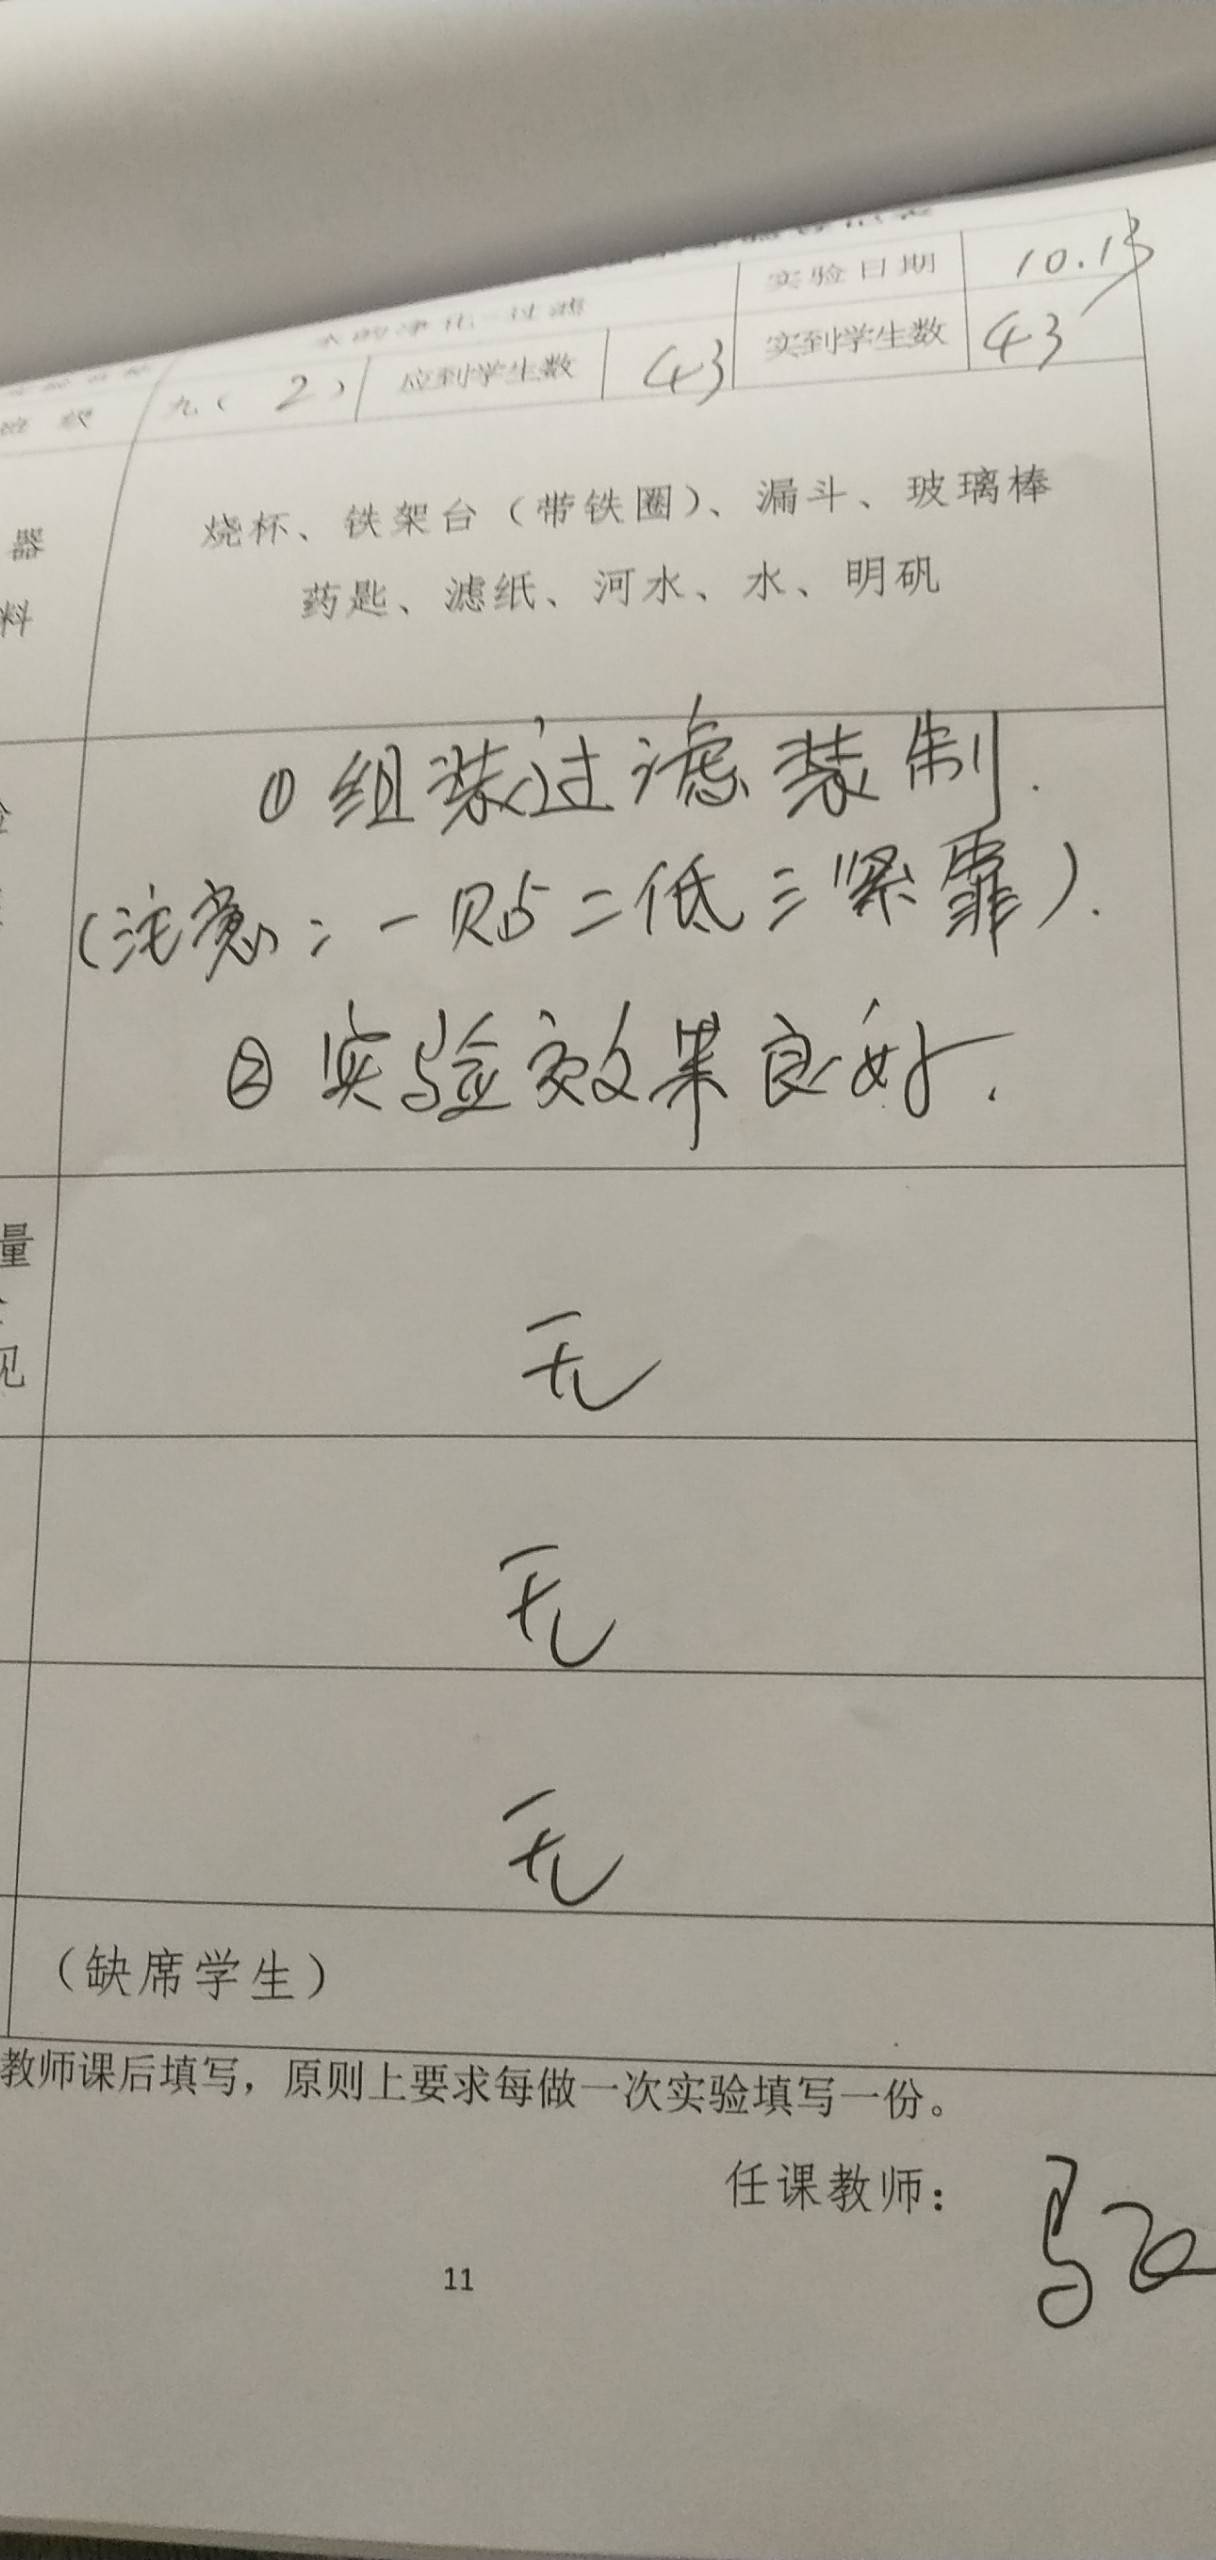 水的净化-过滤 实验日期 10.13
班级 九（ 2 ） 应到学生数 43 实到学生数 43
器 烧杯、铁架台（带铁圈）、漏斗、玻璃棒
料 药匙、滤纸、河水、水、明矾
① 组装过滤装制.
(注意：一贴二低三紧靠).
② 实验效果良好.
量
见
无
无
无
（缺席学生）
教师课后填写，原则上要求每做一次实验填写一份。
任课教师：
11